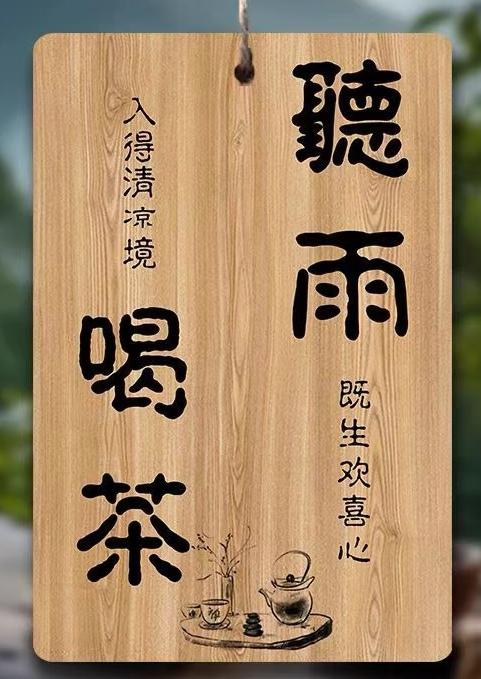 聽雨
既生欢喜心
入得清凉境
喝茶